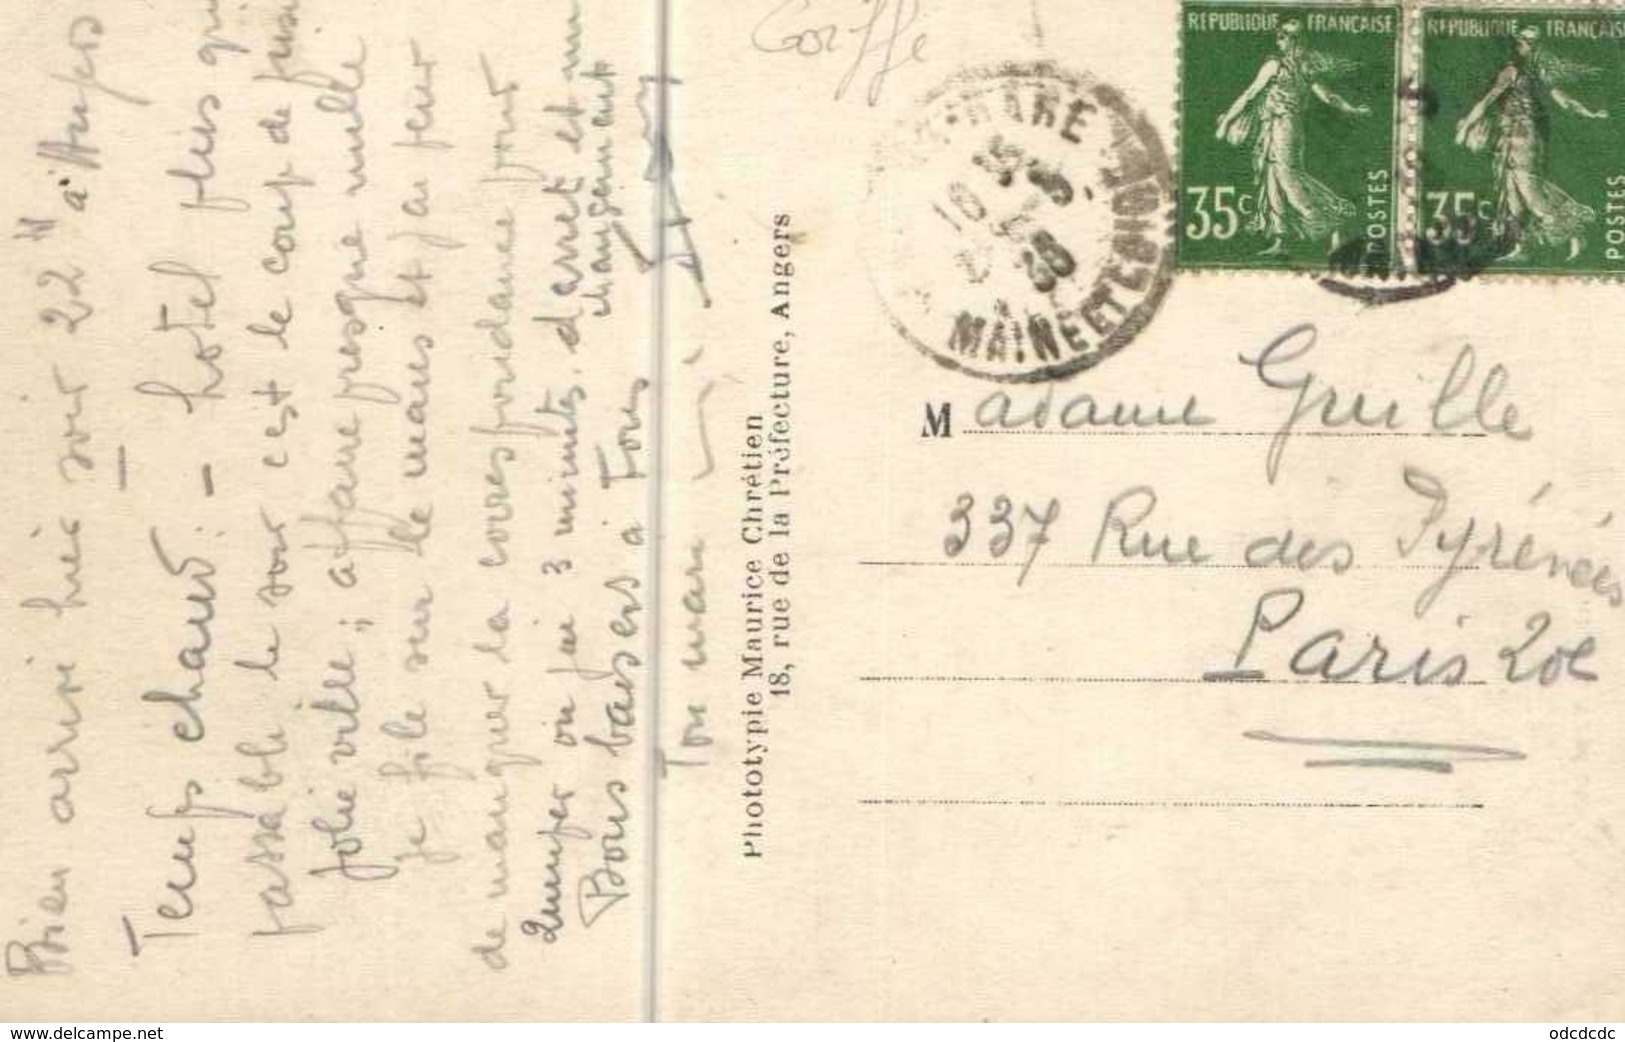 Bien arrivé hier soir 22H à Angers
Temps chaud. - hotel plus que
passable le soir c'est le coup de fusi
jolie ville ; affaire presque nulle
je file sur le mans et j'ai peur
de manquer la correspondance pour
Quimper où j'ai 3 minutes d'arret et un
changement
Bons baisers à Tous
Ton mari
Photoypie Maurice Chrétien
18, rue de la Préfecture, Angers
Goriffe
RÉPUBLIQUE FRANÇAISE
35c POSTES
RÉPUBLIQUE FRANÇAISE
35c POSTES
GARE
MAINE ET LOIRE
Madame Guille
337 Rue des Pyrénées
Paris 20e
www.delcampe.net
odcdcdc